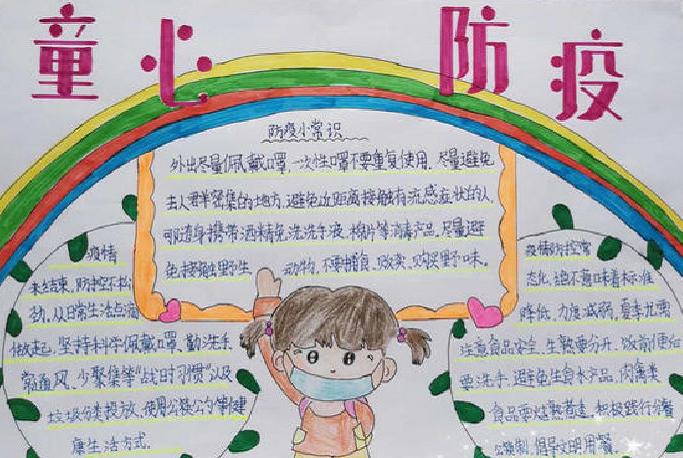 童心 防疫
防疫小常识
外出尽量佩戴口罩、一次性口罩不要重复使用、尽量避免
去人群密集的地方、避免近距离接触有流感症状的人、
可随身携带酒精免洗洗手液、棉片等消毒产品、尽量避
免接触野生动物、不要捕食、贩卖、购买野味。
疫情
未结束、防控不松
劲、从日常生活点滴
做起、坚持科学佩戴口罩、勤洗手
常通风、少聚集等"战时习惯"以及
垃圾分类投放、使用公筷公勺等健
康生活方式。
疫情防控常
态化、绝不意味着标准
降低、力度减弱、夏季尤需
注意食品安全、生熟要分开、饭前便后
要洗手、避免生食水产品、肉禽类
食品要烧熟煮透、积极践行分餐
公筷制、倡导文明用餐。